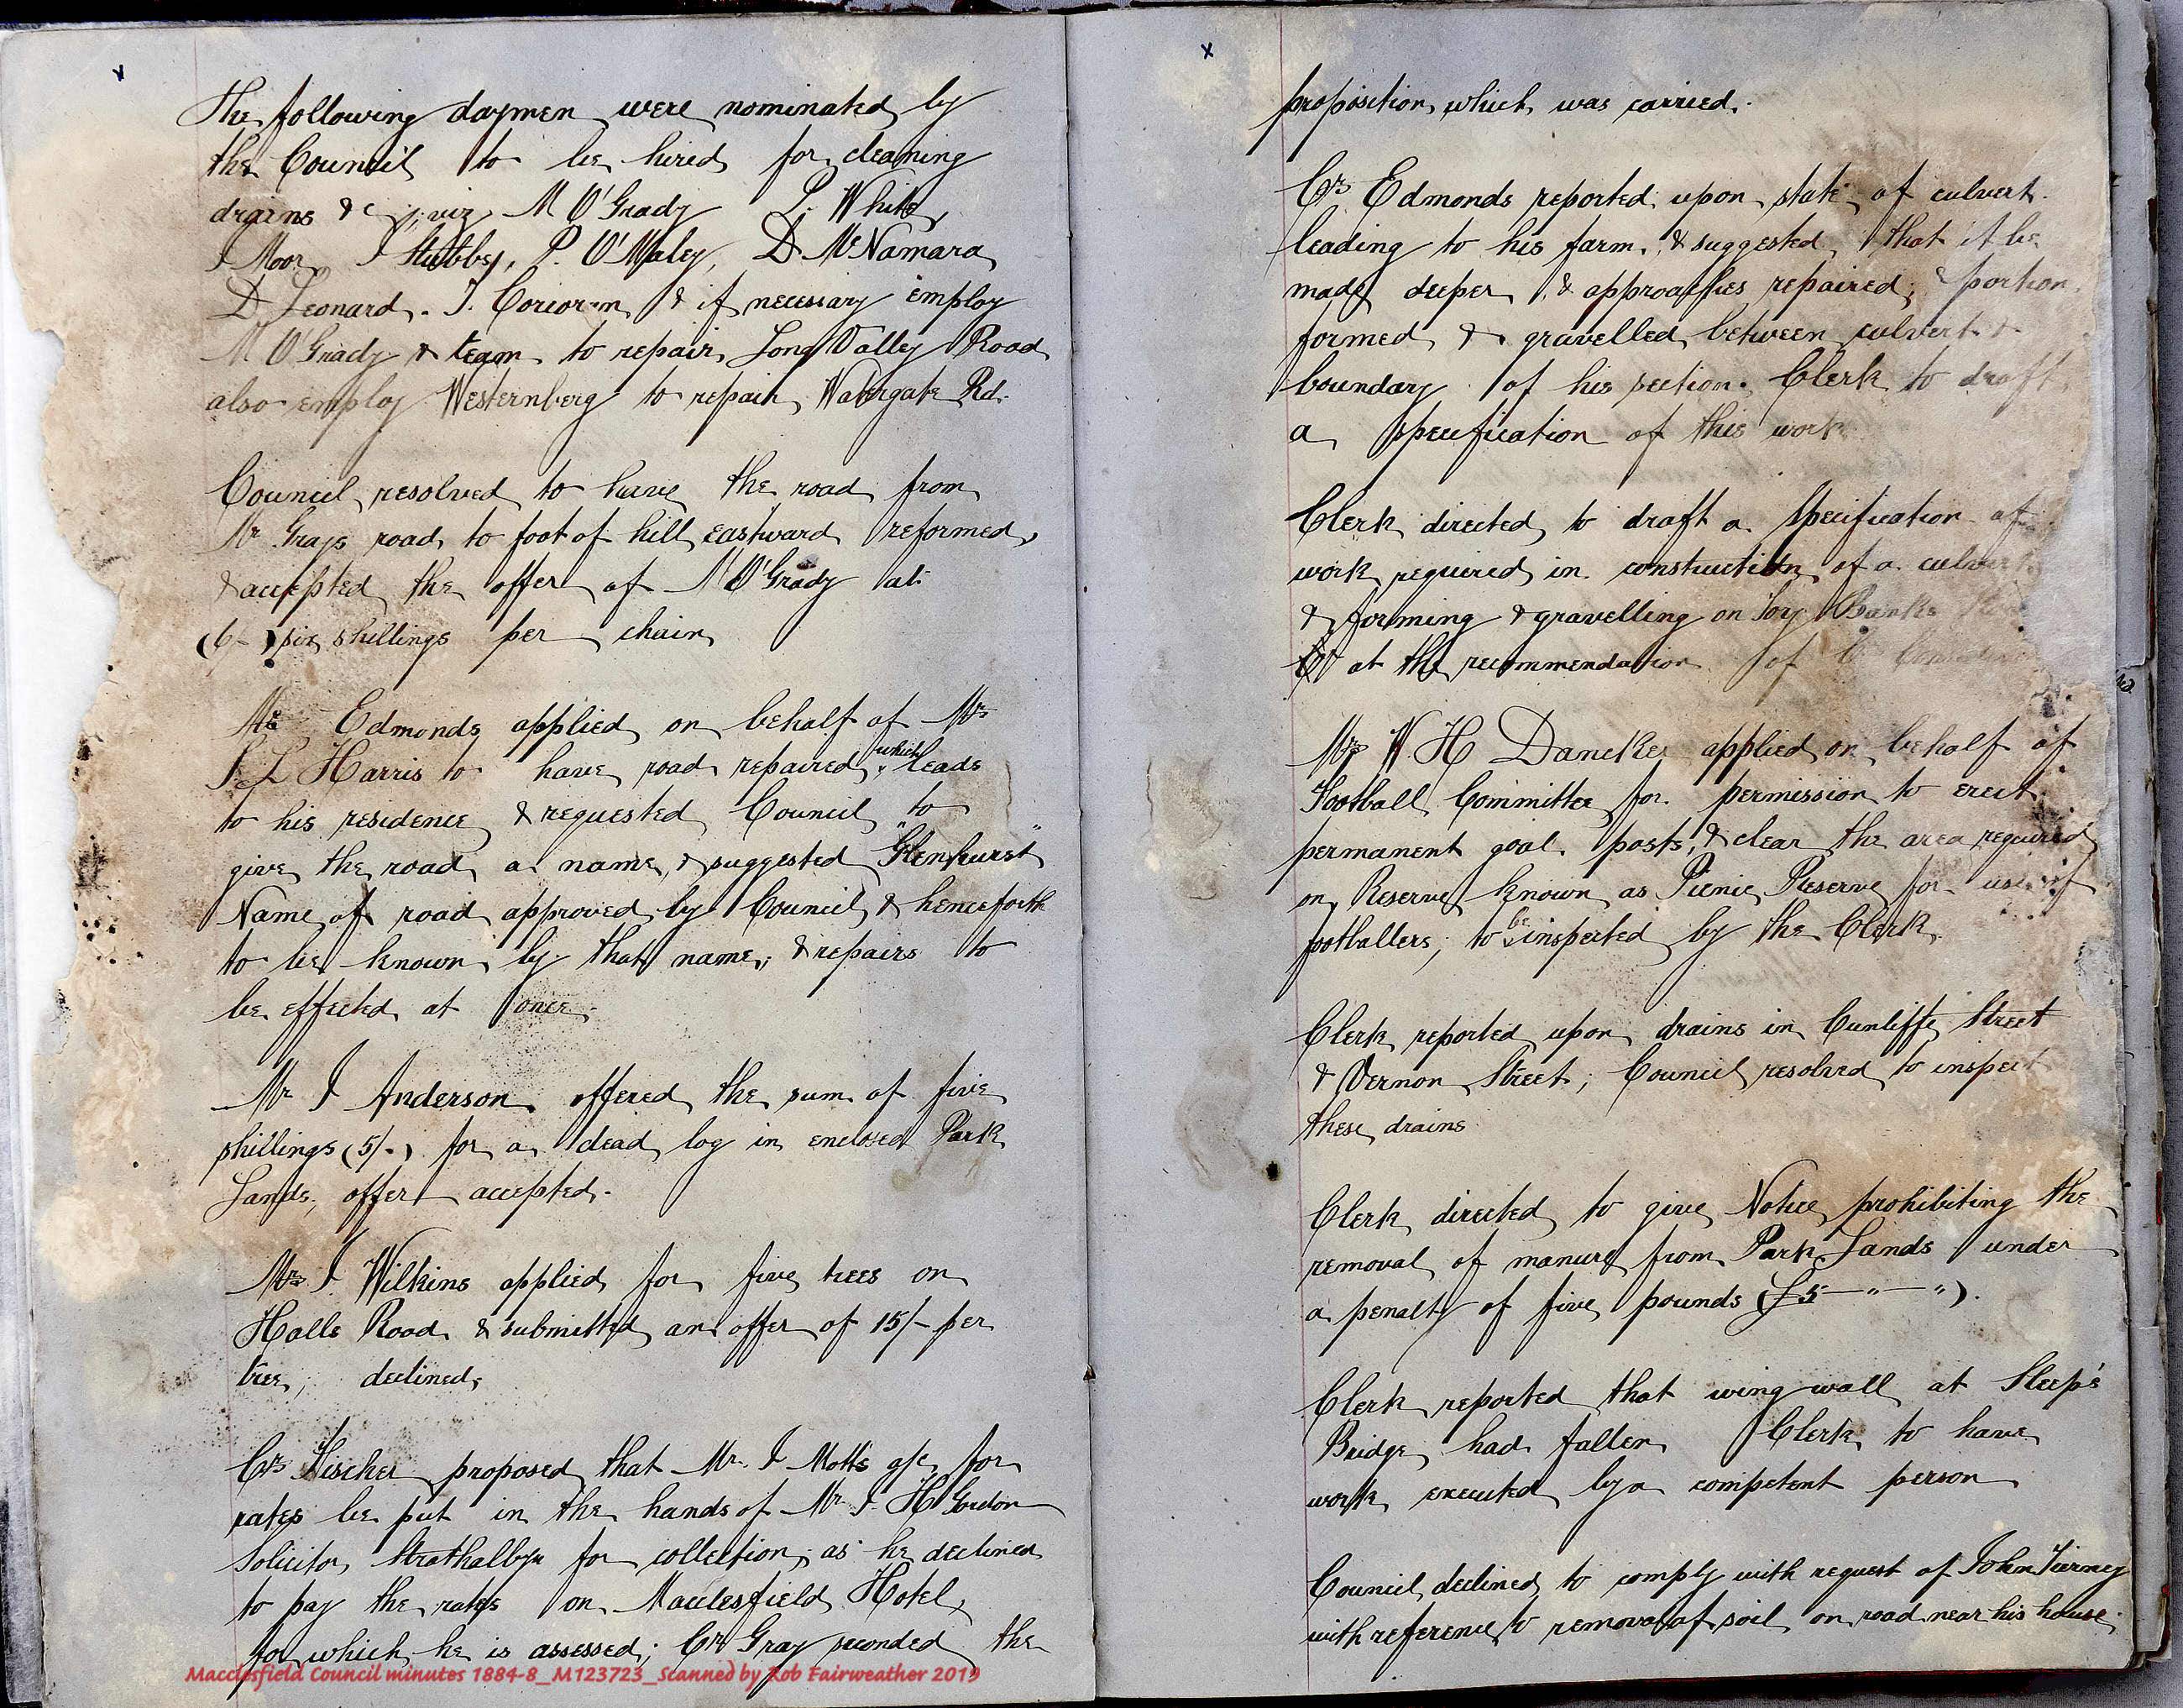 The following daymen were nominated by
the Council to be hired for cleaning
drains &c ; viz M O'Grady P. White,
J Moor, J Stubbs, P. O'Maley, D. McNamara
D Leonard. T. Corcoran & if necessary employ
M O'Grady & team to repair Long Valley Road
also employ Westernberg to repair Watergate Rd.
Council resolved to have the road from
Mr Grays road to foot of hill eastward reformed,
& accepted the offer of M O'Grady at
(6/-) six shillings per chain
Mr Edmonds applied on behalf of Mr
J L Harris to have road repaired which leads
to his residence & requested Council to
give the road a name, & suggested "Glenhurst"
Name of road approved by Council & henceforth
to be known by that name; & repairs to
be effected at once.
Mr J Anderson offered the sum of five
shillings (5/-) for a dead log in enclosed Park
Lands; offer accepted.
Mr J. Wilkins applied for five trees on
Halls Road & submitted an offer of 15/- per
tree; declined.
Crs Fischer proposed that Mr J Motts a/c for
rates be put in the hands of Mr J. H Gordon
Solicitor, Strathalbyn for collection; as he declined
to pay the rates on Macclesfield Hotel,
for which he is assessed; Crs Gray seconded the
Macclesfield Council minutes 1884-8_M123723_Scanned by Rob Fairweather 2019
x
proposition, which was carried.
Crs Edmonds reported upon state of culvert
leading to his farm, & suggested that it be
made deeper, & approaches repaired; & portion
formed & gravelled between culvert &
boundary of his section. Clerk to draft
a specification of this work
Clerk directed to draft a Specification of
work required in construction of a culvert
& forming & gravelling on Banks
at the recommendation of
Mr W H Dancker applied on behalf of
Football Committee for permission to erect
permanent goal posts, & clear the area required
on Reserve known as Picnic Reserve for use of
footballers; to be inspected by the Clerk.
Clerk reported upon drains in Cunliffe Street
& Vernon Street; Council resolved to inspect
these drains
Clerk directed to give Notice prohibiting the
removal of manure from Park Lands under
a penalty of five pounds (£5 — " — ").
Clerk reported that wing wall at Sleep's
Bridge had fallen Clerk to have
work executed by a competent person
Council declined to comply with request of John Tierney
with reference to removal of soil on road near his house.